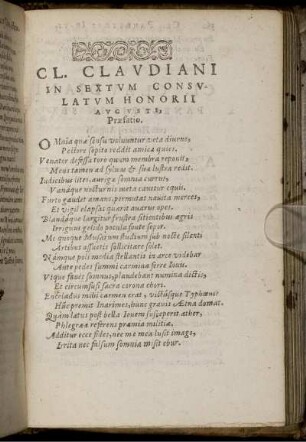 CL. CLAVDIANI
IN SEXTVM CONSV-
LATVM HONORII
AVGVSTI,
Præfatio.
OMnia quæ sensu voluuntur vota diurno,
Pectore sopito reddit amica quies.
Venator defessa toro quum membra reponit,
Mens tamen ad syluas & sua lustra redit.
Iudicibus lites, aurigæ somnia currus,
Vanáque nocturnis meta cauetur equis.
Furto gaudet amans, permutat nauita merces,
Et vigil elapsas quærit auarus opes.
Blandáque largitur frustra sitientibus ægris
Irriguus gelido pocula fonte sopor.
Me quoque Musarum studium sub nocte silenti
Artibus assuetis sollicitare solet.
Námque poli media stellantis in arce videbar
Ante pedes summi carmina ferre Iouis.
Vtque fauet somnus, plaudebant numina dictis,
Et circumfusi sacra corona chori.
Enceladus mihi carmen erat, victúsque Typhœus:
Hic subit Inarimen, hunc grauis Aetna domat.
Quàm lætus post bella Iouem susceperit æther,
Phlegrææ referens præmia militiæ.
Additur ecce fides, nec me mea lusit imago,
Irrita nec falsum somnia misit ebur.